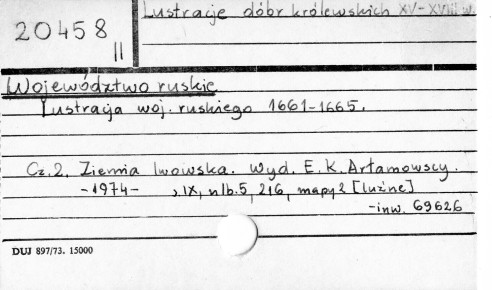 Lustracje dóbr królewskich XV-XVIII w.
20458
II
Województwo ruskie
Lustracja woj. ruskiego 1661-1665.
Cz. 2. Ziemia lwowska. Wyd. E. K. Artamowscy.
-1974- s. IX, nlb. 5, 216, mapy 2 [luźne]
-inw. 69626
DUJ 897/73. 15000